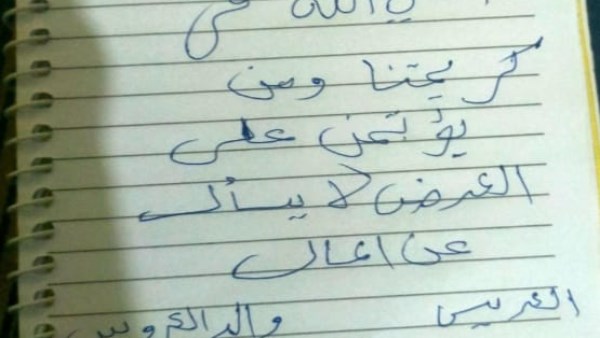 الله في
كريمتنا ومن
يؤتمن على
العرض لا يسأل
عن المال
العريس والد العروس